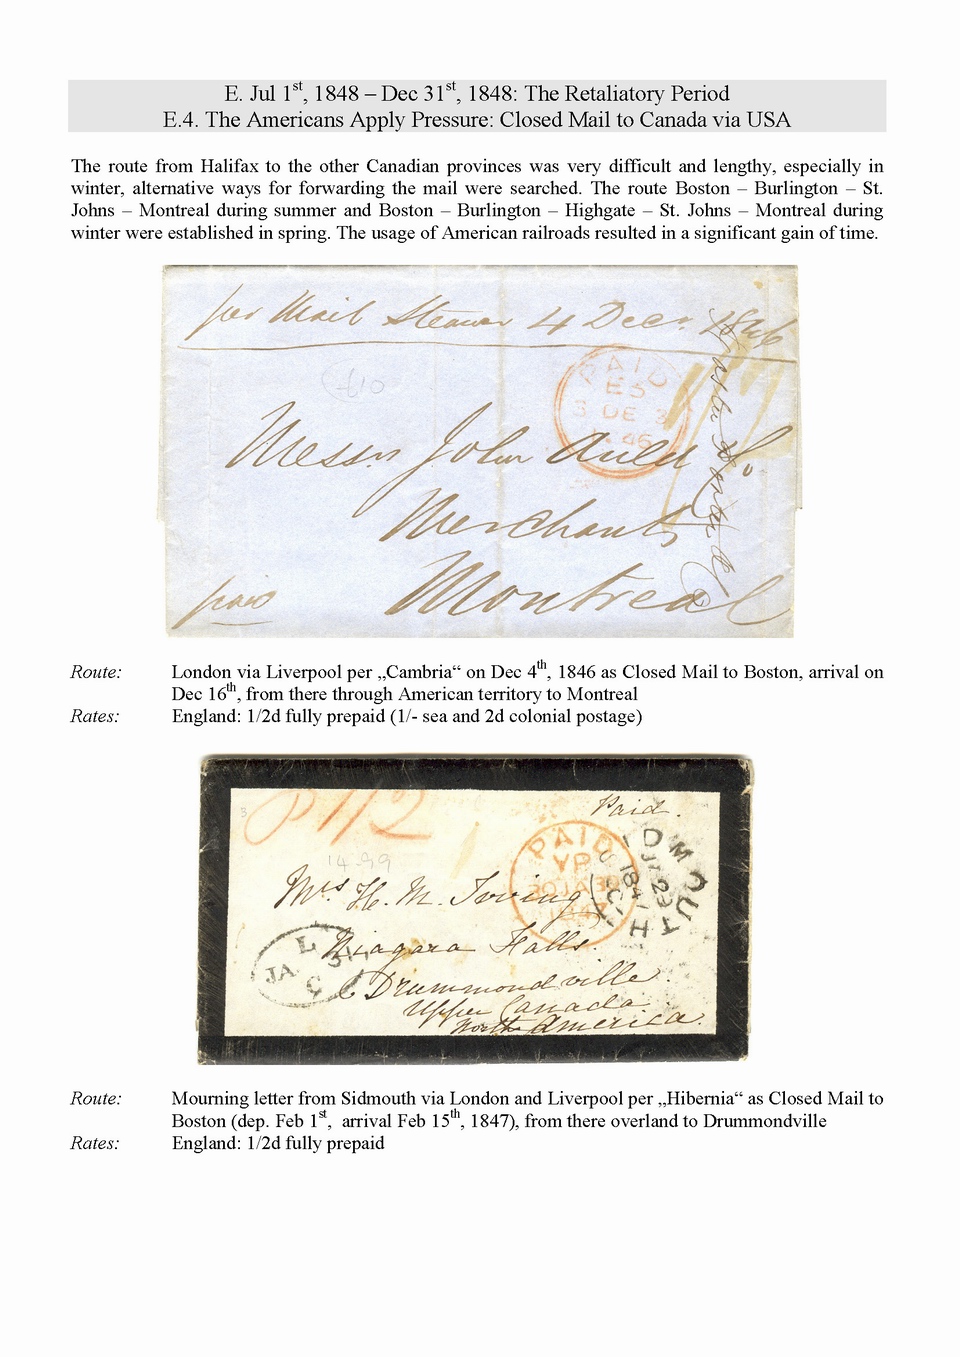 E. Jul 1st, 1848 – Dec 31st, 1848: The Retaliatory Period
E.4. The Americans Apply Pressure: Closed Mail to Canada via USA
The route from Halifax to the other Canadian provinces was very difficult and lengthy, especially in
winter, alternative ways for forwarding the mail were searched. The route Boston – Burlington – St.
Johns – Montreal during summer and Boston – Burlington – Highgate – St. Johns – Montreal during
winter were established in spring. The usage of American railroads resulted in a significant gain of time.
per Mail Steamer 4 Decr. 1846
£10
PAID
E3
3 DE 3
1846
Messrs John Auld
Merchants
Montreal
paid
Route: London via Liverpool per „Cambria“ on Dec 4th, 1846 as Closed Mail to Boston, arrival on
Dec 16th, from there through American territory to Montreal
Rates: England: 1/2d fully prepaid (1/- sea and 2d colonial postage)
P 1/2
Paid.
3
14-99
PAID
YP
30 JA 30
1847
SIDMOUTH
JA 29
1847
Mrs H. M. Irving
Niagara Falls.
Drummondville.
Upper Canada.
North America.
L
JA 30
C
Route: Mourning letter from Sidmouth via London and Liverpool per „Hibernia“ as Closed Mail to
Boston (dep. Feb 1st, arrival Feb 15th, 1847), from there overland to Drummondville
Rates: England: 1/2d fully prepaid